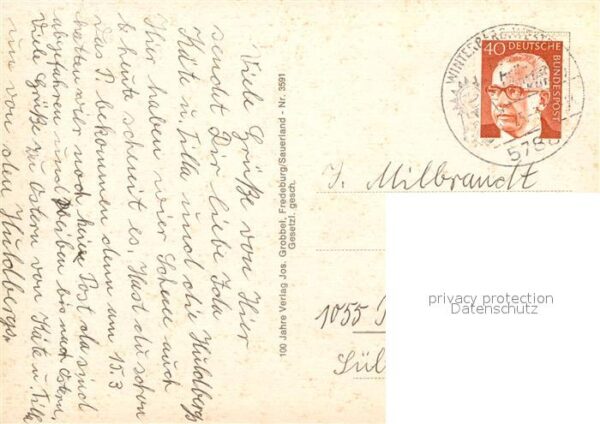 Viele Grüße von Hier
sendet Dir liebe Ida
Käte u. Tilla und die Huldbergs
Hier haben wier Schnee auch
heute schneit es. Hast du schon
das P. bekommen denn am 15.3
hatten wier noch keine Post da sind
abgefahren und bleiben bis nach Ostern,
Viele Grüße zu Ostern von Käte u. Tilla
un von den Huldbergs.
100 Jahre Verlag Jos. Grobbel, Fredeburg/Sauerland - Nr. 3591
Gesetzl. gesch.
WINTERBERG, WESTF
5788
40 DEUTSCHE
BUNDESPOST
J. Milbrandt
1055
Sül
privacy protection
Datenschutz